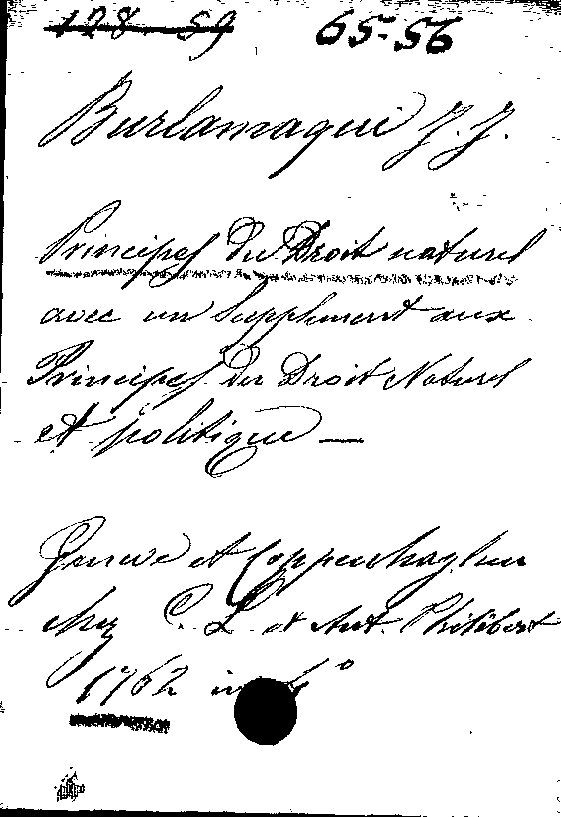 128-59 65-56
Burlamaqui J. J.
Principes du Droit naturel
avec un Supplement aux
Principes du Droit Naturel
et politique —
Geneve et Coppenhaghen
chez C. L. et Ant. Philibert
1762 in 4°